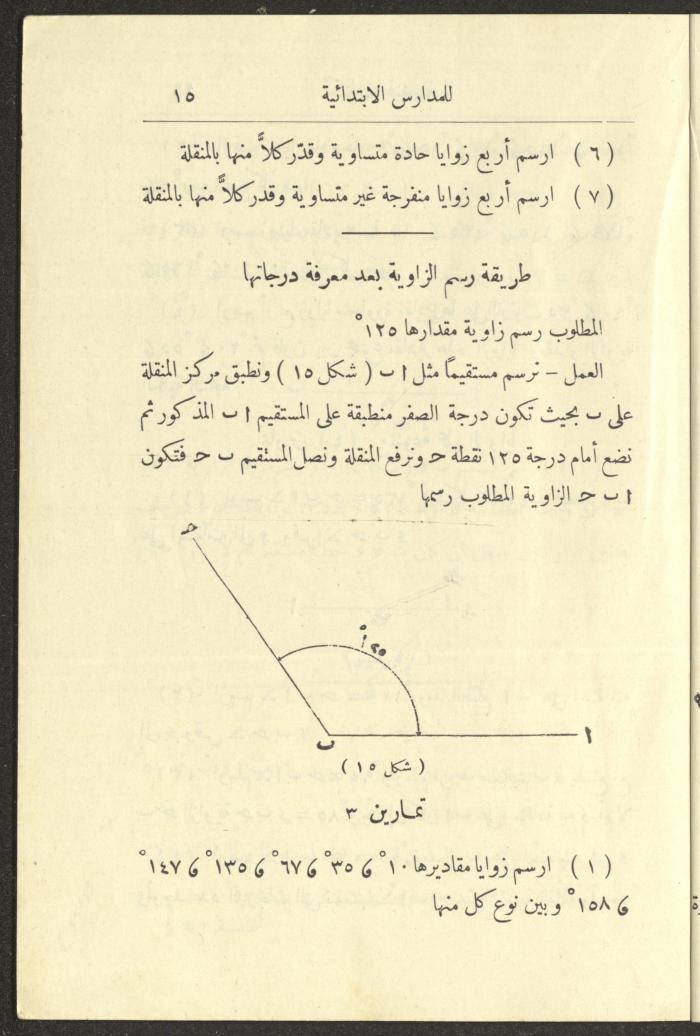 للمدارس الابتدائية ١٥
(٦) ارسم أربع زوايا حادة متساوية وقدّر كلاًّ منها بالمنقلة
(٧) ارسم أربع زوايا منفرجة غير متساوية وقدر كلاًّ منها بالمنقلة
طريقة رسم الزاوية بعد معرفة درجاتها
المطلوب رسم زاوية مقدارها ١٢٥°
العمل – نرسم مستقيمًا مثل ا ب (شكل ١٥) ونطبق مركز المنقلة
على ب بحيث تكون درجة الصفر منطبقة على المستقيم ا ب المذكور ثم
نضع أمام درجة ١٢٥ نقطة حـ ونرفع المنقلة ونصل المستقيم ب حـ فتكون
ا ب حـ الزاوية المطلوب رسمها
حـ
١٢٥°
ب
ا
(شكل ١٥)
تمارين ٣
(١) ارسم زوايا مقاديرها ١٠° ، ٣٥° ، ٦٧° ، ١٣٥° ، ١٤٧°
، ١٥٨° وبين نوع كل منها